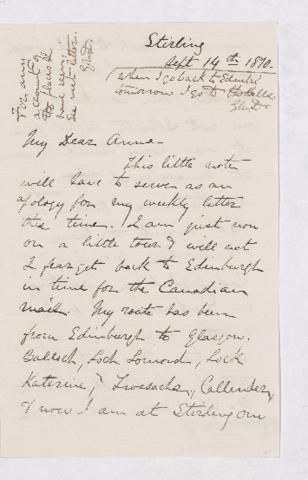 Stirling
Sept 14th 1870.
When I go back to Edinbr
tomorrow I go to
For any
account of
the places I
have seen
see next letter.
My Dear Anna
This little note
will have to serve as an
apology for my weekly letter
this time. I am just now
on a little tour & will not
I fear get back to Edinburgh
in time for the Canadian
mail. My route has been
from Edinburgh to Glasgow.
Balloch, Loch Lomond, Loch
Katerine, Trossachs, Callender,
& now I am at Stirling on